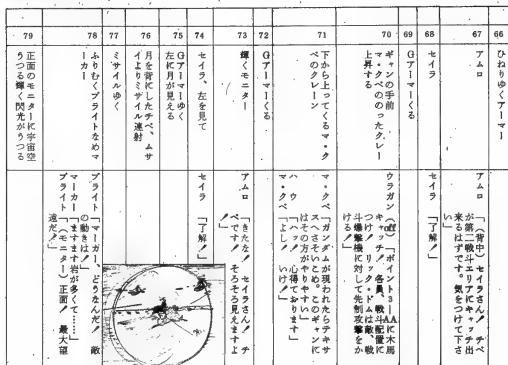 66
ひねりゆくGアーマー
67
アムロ
アムロ「(背中)セイラさん!チベ
が第二戦斗エリアにキャッチ出
来るはずです。気をつけて下さ
い」
68
セイラ
セイラ「了解!」
69
Gアーマーくる
70
ギャンの手前
マ・クベののったクレー
上昇する
ウラガン(off)「ポイント3―AAに木馬
キャッチ!各員、戦斗配置に
つけ!リック・ドムは敵、戦
斗爆撃機に対して先制攻撃をか
ける!」
71
下から上ってくるマ・ク
ベのクレーン
マ・クベ「ガンダムが現われたらテキサ
スへさそいこめ。このギャンに
はその方がやりやすい」
ハウ「ハッ!心得ております」
マ・クベ「よし!いけ!」
72
Gアーマーくる
73
輝くモニター
アムロ「きたな!セイラさん!チ
ベです!そろそろ見えますよ
!」
74
セイラ、左を見て
セイラ「了解!」
75
Gアーマーゆく
左に月が見える
76
月を背にしたチベ、ムサ
イよりミサイル連射
77
ミサイルゆく
78
ふりむくブライトなめマ
ーカー
ブライト「マーカー、どうなんだ!敵
の動きは!」
マーカー「ますます岩が多くて……」
ブライト「(モニター)正面!最大望
遠だ!」
79
正面のモニターに宇宙空
うつる輝く閃光がうつる